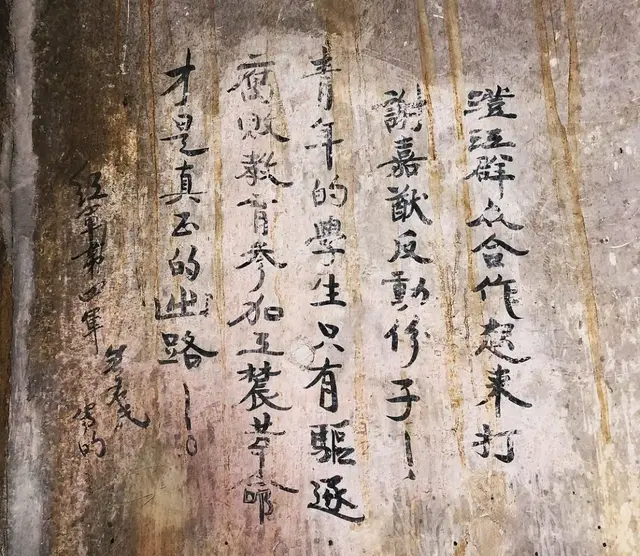 澄江群众合作起来打
謝嘉猷反動份子！
青年的學生只有驅逐
腐敗教育参加工農革命
才是真正的出路！。
红軍第四軍
的